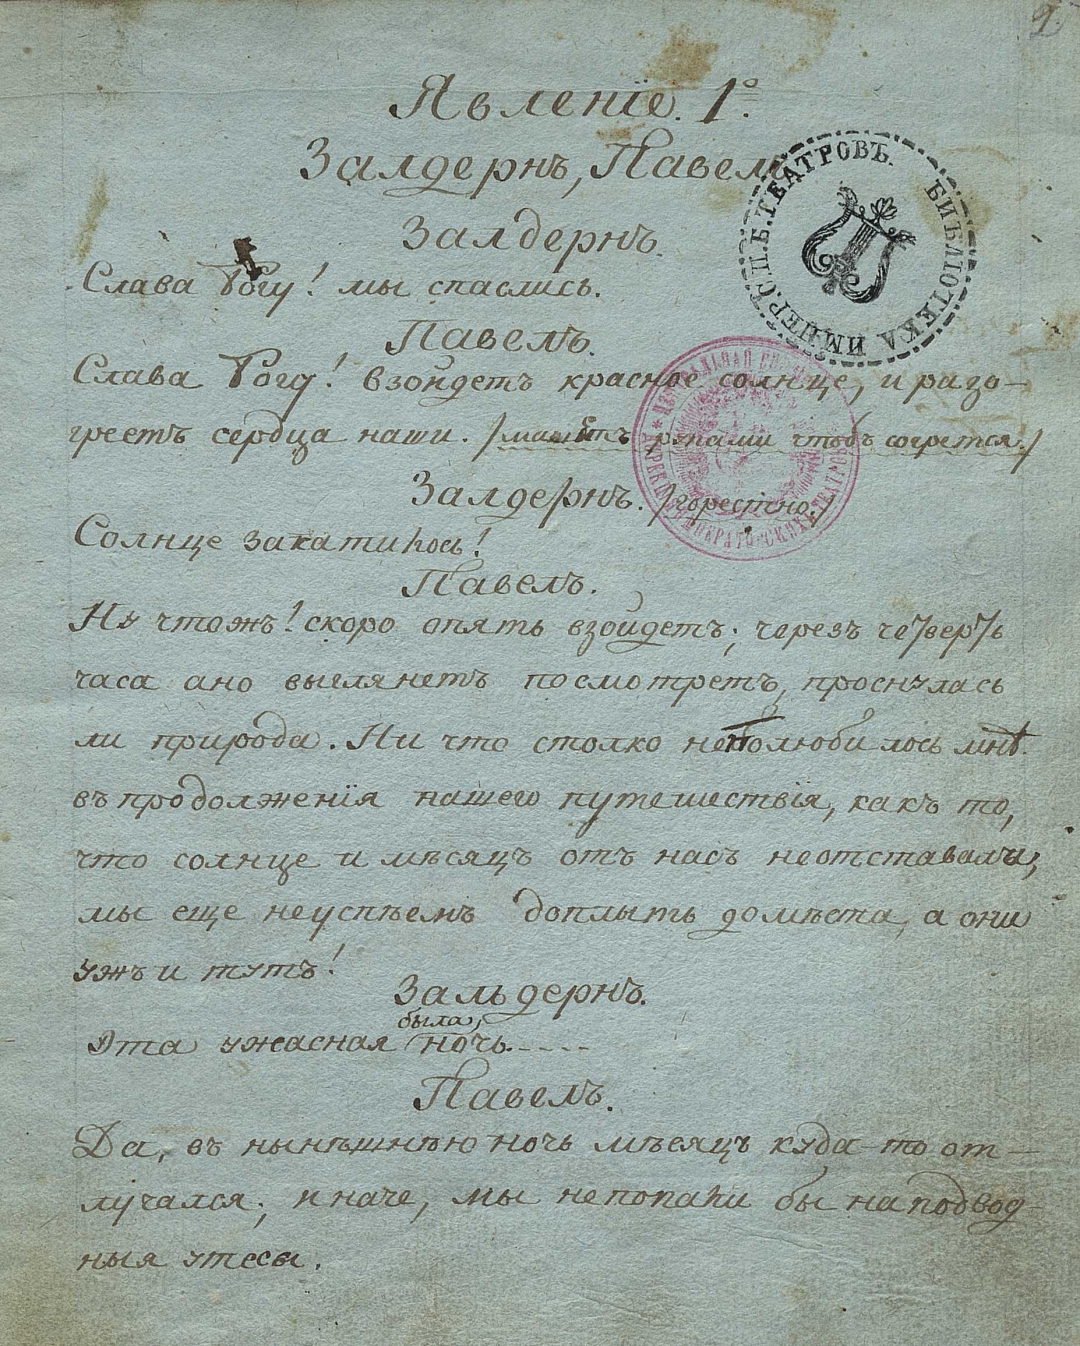 2.
Явленіе. 1е.
Залдернъ, Павелъ
Залдернъ.
Слава Богу! мы спаслись.
Павелъ.
Слава Богу! взойдетъ красное солнце, и разо-
греетъ сердца наши. /машетъ руками чтобъ согретса./
Залдернъ. /горестно./
Солнце закатилось!
Павелъ.
Ну чтожъ! скоро опять взойдетъ; черезъ четверть
часа ано выглянетъ посмотретъ, проснулась
ли природа. Ни что столко неполюбилось мнѣ
въ продолженія нашего путешествія, какъ то,
что солнце и мѣсяцъ отъ насъ неотставалы;
мы еще неуспѣемъ доплыть домѣста, а они
ужъ и тутъ!
Зальдернъ.
была,
Эта ужасная ночь.----
Павелъ.
Да, въ нынѣшнѣю ночь мѣсяцъ куда-то от-
лучался; иначе, мы непопали бы на подвод-
ныя утесы.
БИБЛІОТЕКА ИМПЕР. С.П.Б. ТЕАТРОВЪ.